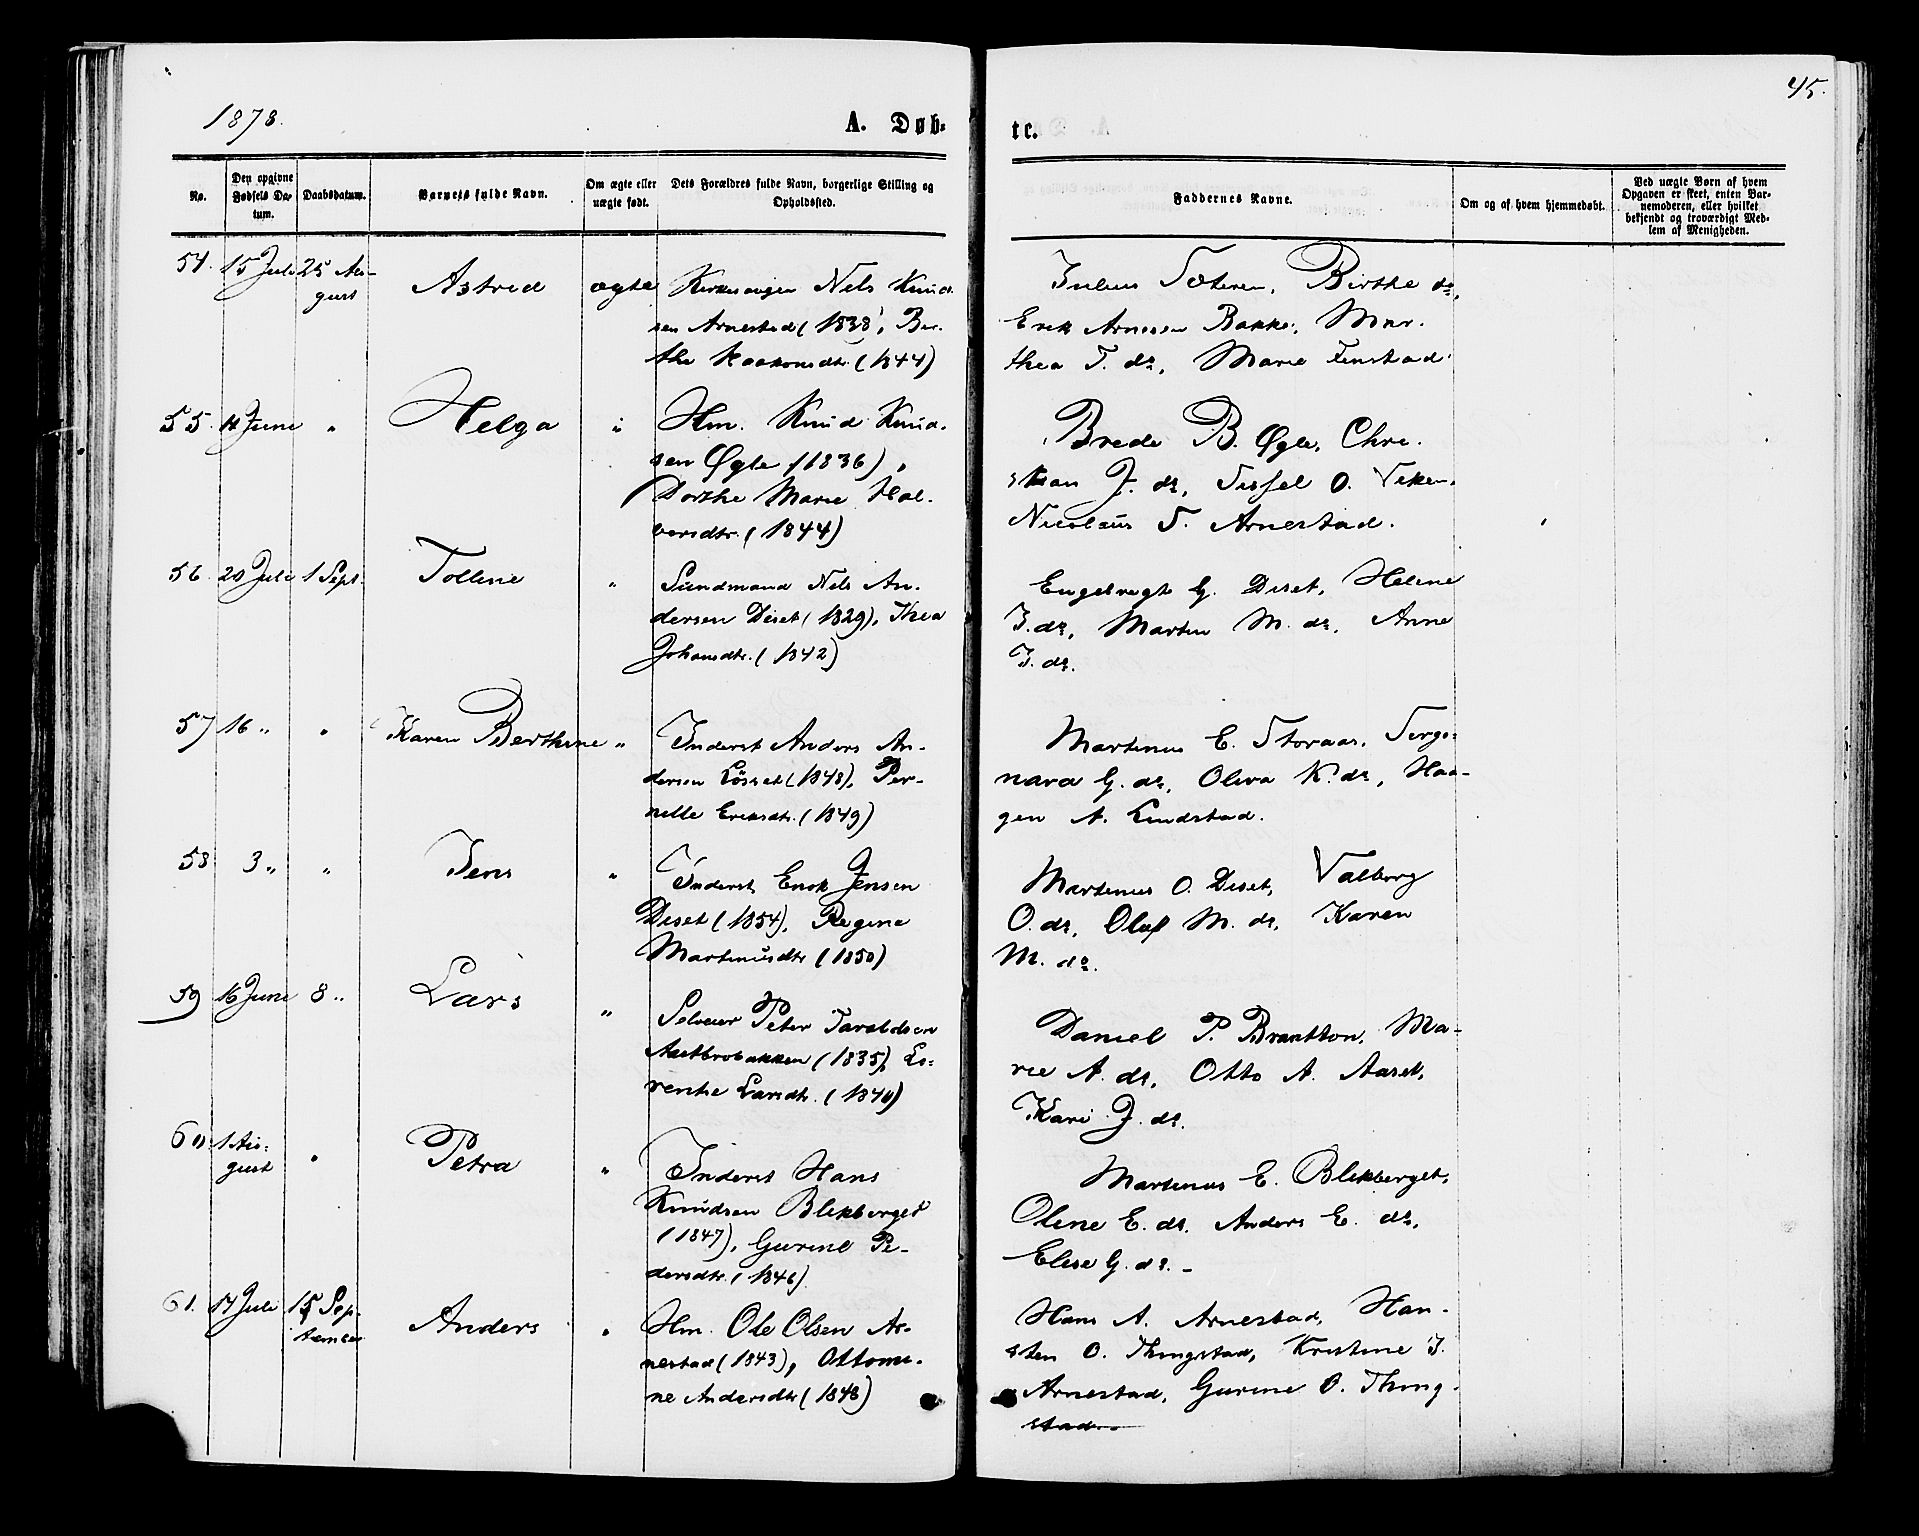 1878.
45.
A. Døb-
te.
No.
Den opgivne Fødsels Da-tum.
Daabsdatum.
Barnets fulde Navn.
Om ægte eller uægte født.
Dets Forældres fulde Navn, borgerlige Stilling og Opholdssted.
Faddernes Navne.
Om og af hvem hjemmedøbt.
Ved uægte Børn af hvem Opgaven er skeet, enten Bar-nemoderen, eller hvilket bekjendt og troværdigt Med-lem af Menigheden.
54. 15 Juli 25 Au-
gust
Astrid
ægte
Nils Knud-
sen Arnestad (1838), Ber-
the Haakonsdtr. (1844)
Julius Sæteren, Birthe ds,
Erik Arnesen Bakke, Mar-
thea T. ds, Marie Finstad
55. 11 Juni "
Helga
"
Hm. Knud Knud-
sen Øgle (1836),
Dorthe Marie Hal-
vorsdtr. (1844)
Brede B. Øgle, Chri-
stian J. ds, Sissel O. Viken,
Nicolaus T. Arnestad.
56. 20 Juli 1 Sept.
Tolline
"
Nils An-
dersen Diset (1829), Thea
Johansdtr. (1842)
Engebregt G. Diset, Helene
J. ds, Martin M. ds, Anne
J. ds.
57 16 " "
Karen Berthine
"
Inderst Anders An-
dersen Løsset (1848), Per-
nille Eriksdtr. (1849)
Martinus E. Storaas,
G. ds, Oliva K. ds, Haa-
gen A. Lindstad.
58 3 " "
Jens
"
Inderst Enok Jensen
Diset (1854), Regine
Martinusdtr (1850)
Martinus O. Diset, Valborg
O. ds, Oluf M. ds, Karen
M. ds.
59 16 Juni 8 "
Lars
"
Selveier Peter Taraldsen
Aastbrobakken (1835), Lo-
rentse Larsdtr. (1840)
Daniel P. Bratton, Ma-
rie A. ds, Otto A. Aaset,
Kari J. ds.
60 1 Au-
gust "
Petra
"
Inderst Hans
Knudsen Blikberget
(1847), Gurine Pe-
dersdtr. (1846)
Martinus E. Blikberget,
Oline E. ds. Anders E. ds,
Elise G. ds. -
61. 17 Juli 15 Sep-
tember
Anders
"
Hm. Ole Olsen Ar-
nestad (1843), Ottomi-
ne Andersdtr (1848)
Hans A. Arnestad, Han-
sten O. Thingstad, Kristine J.
Arnestad, Gurine O. Thing-
stad.